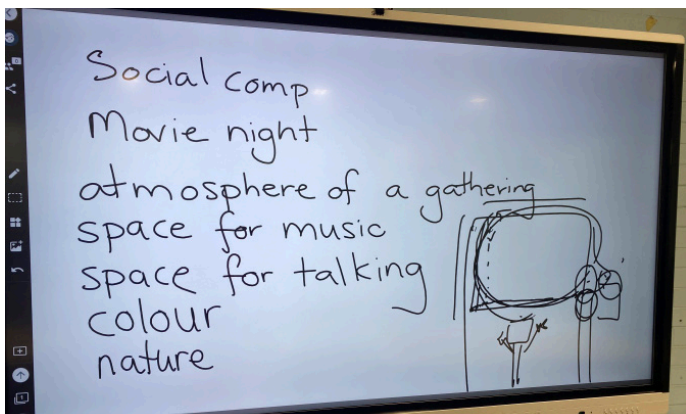 Social comp
Movie night
atmosphere of a gathering
space for music
space for talking
colour
nature